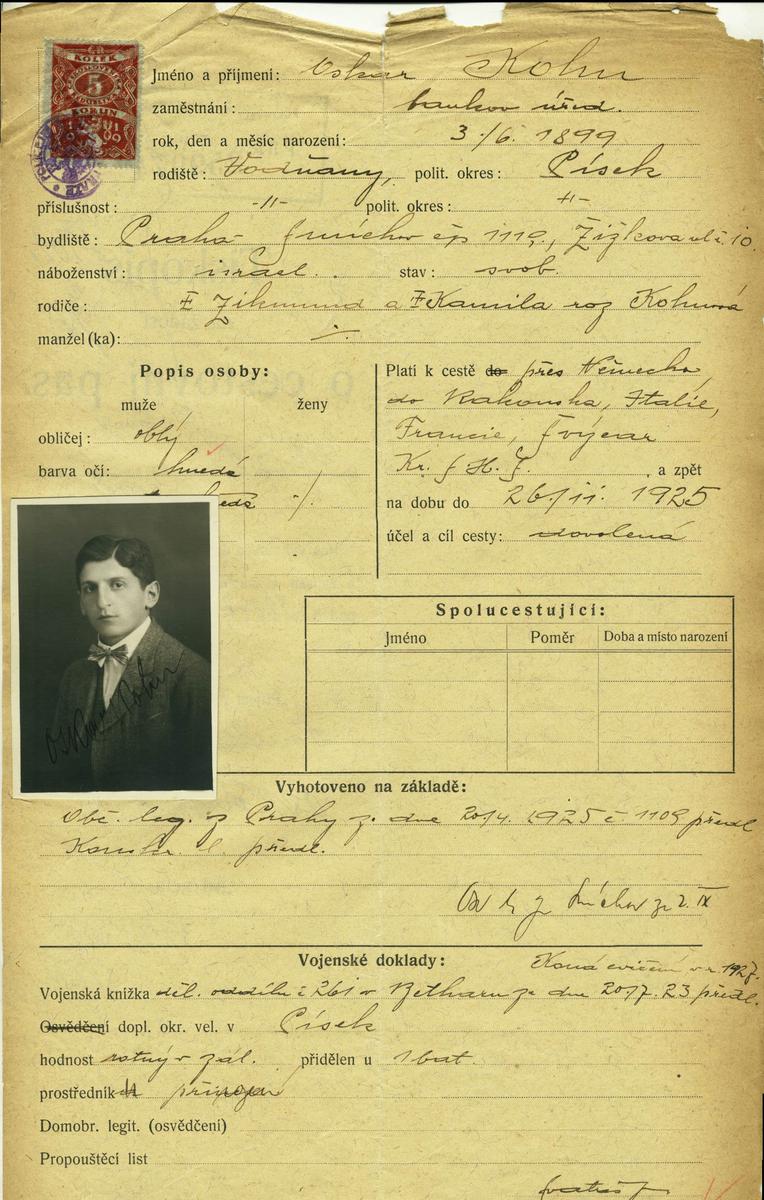 KOLEK
5
KORUN
Jméno a příjmení: Oskar Kohn
zaměstnání: bankov. úřed.
rok, den a měsíc narození: 3./6. 1899
rodiště: Vodňany, polit. okres: Písek
příslušnost: -"- polit. okres: -"-
bydliště: Praha Smíchov čp 1119., Žižkova ul. č. 10.
náboženství: israel. stav: svob.
rodiče: Zikmund a Kamila roz Kohnová
manžel (ka): ./.
Popis osoby:
muže ženy
obličej: oblý
barva očí: hnědá
hnědá ./.
Platí k cestě do přes Německo,
do Rakouska, Italie,
Francie, Švýcar
Kr. S. H. S. , a zpět
na dobu do 26./11. 1925
účel a cíl cesty: dovolená
Spolucestující:
Jméno Poměr Doba a místo narození
Oskar Kohn
Vyhotoveno na základě:
Obč. leg. z Prahy z. dne 20/4. 1925 č 1109 předl
předl.
Smíchov IX
Vojenské doklady: Koná cvičení v r. 1927.
Vojenská knížka děl. oddílu č 261 v ze dne 20/7. 23 předl.
Osvědčení dopl. okr. vel. v Písek
hodnost rotný v zál. přidělen u 1 bat.
prostředník
Domobr. legit. (osvědčení)
Propouštěcí list